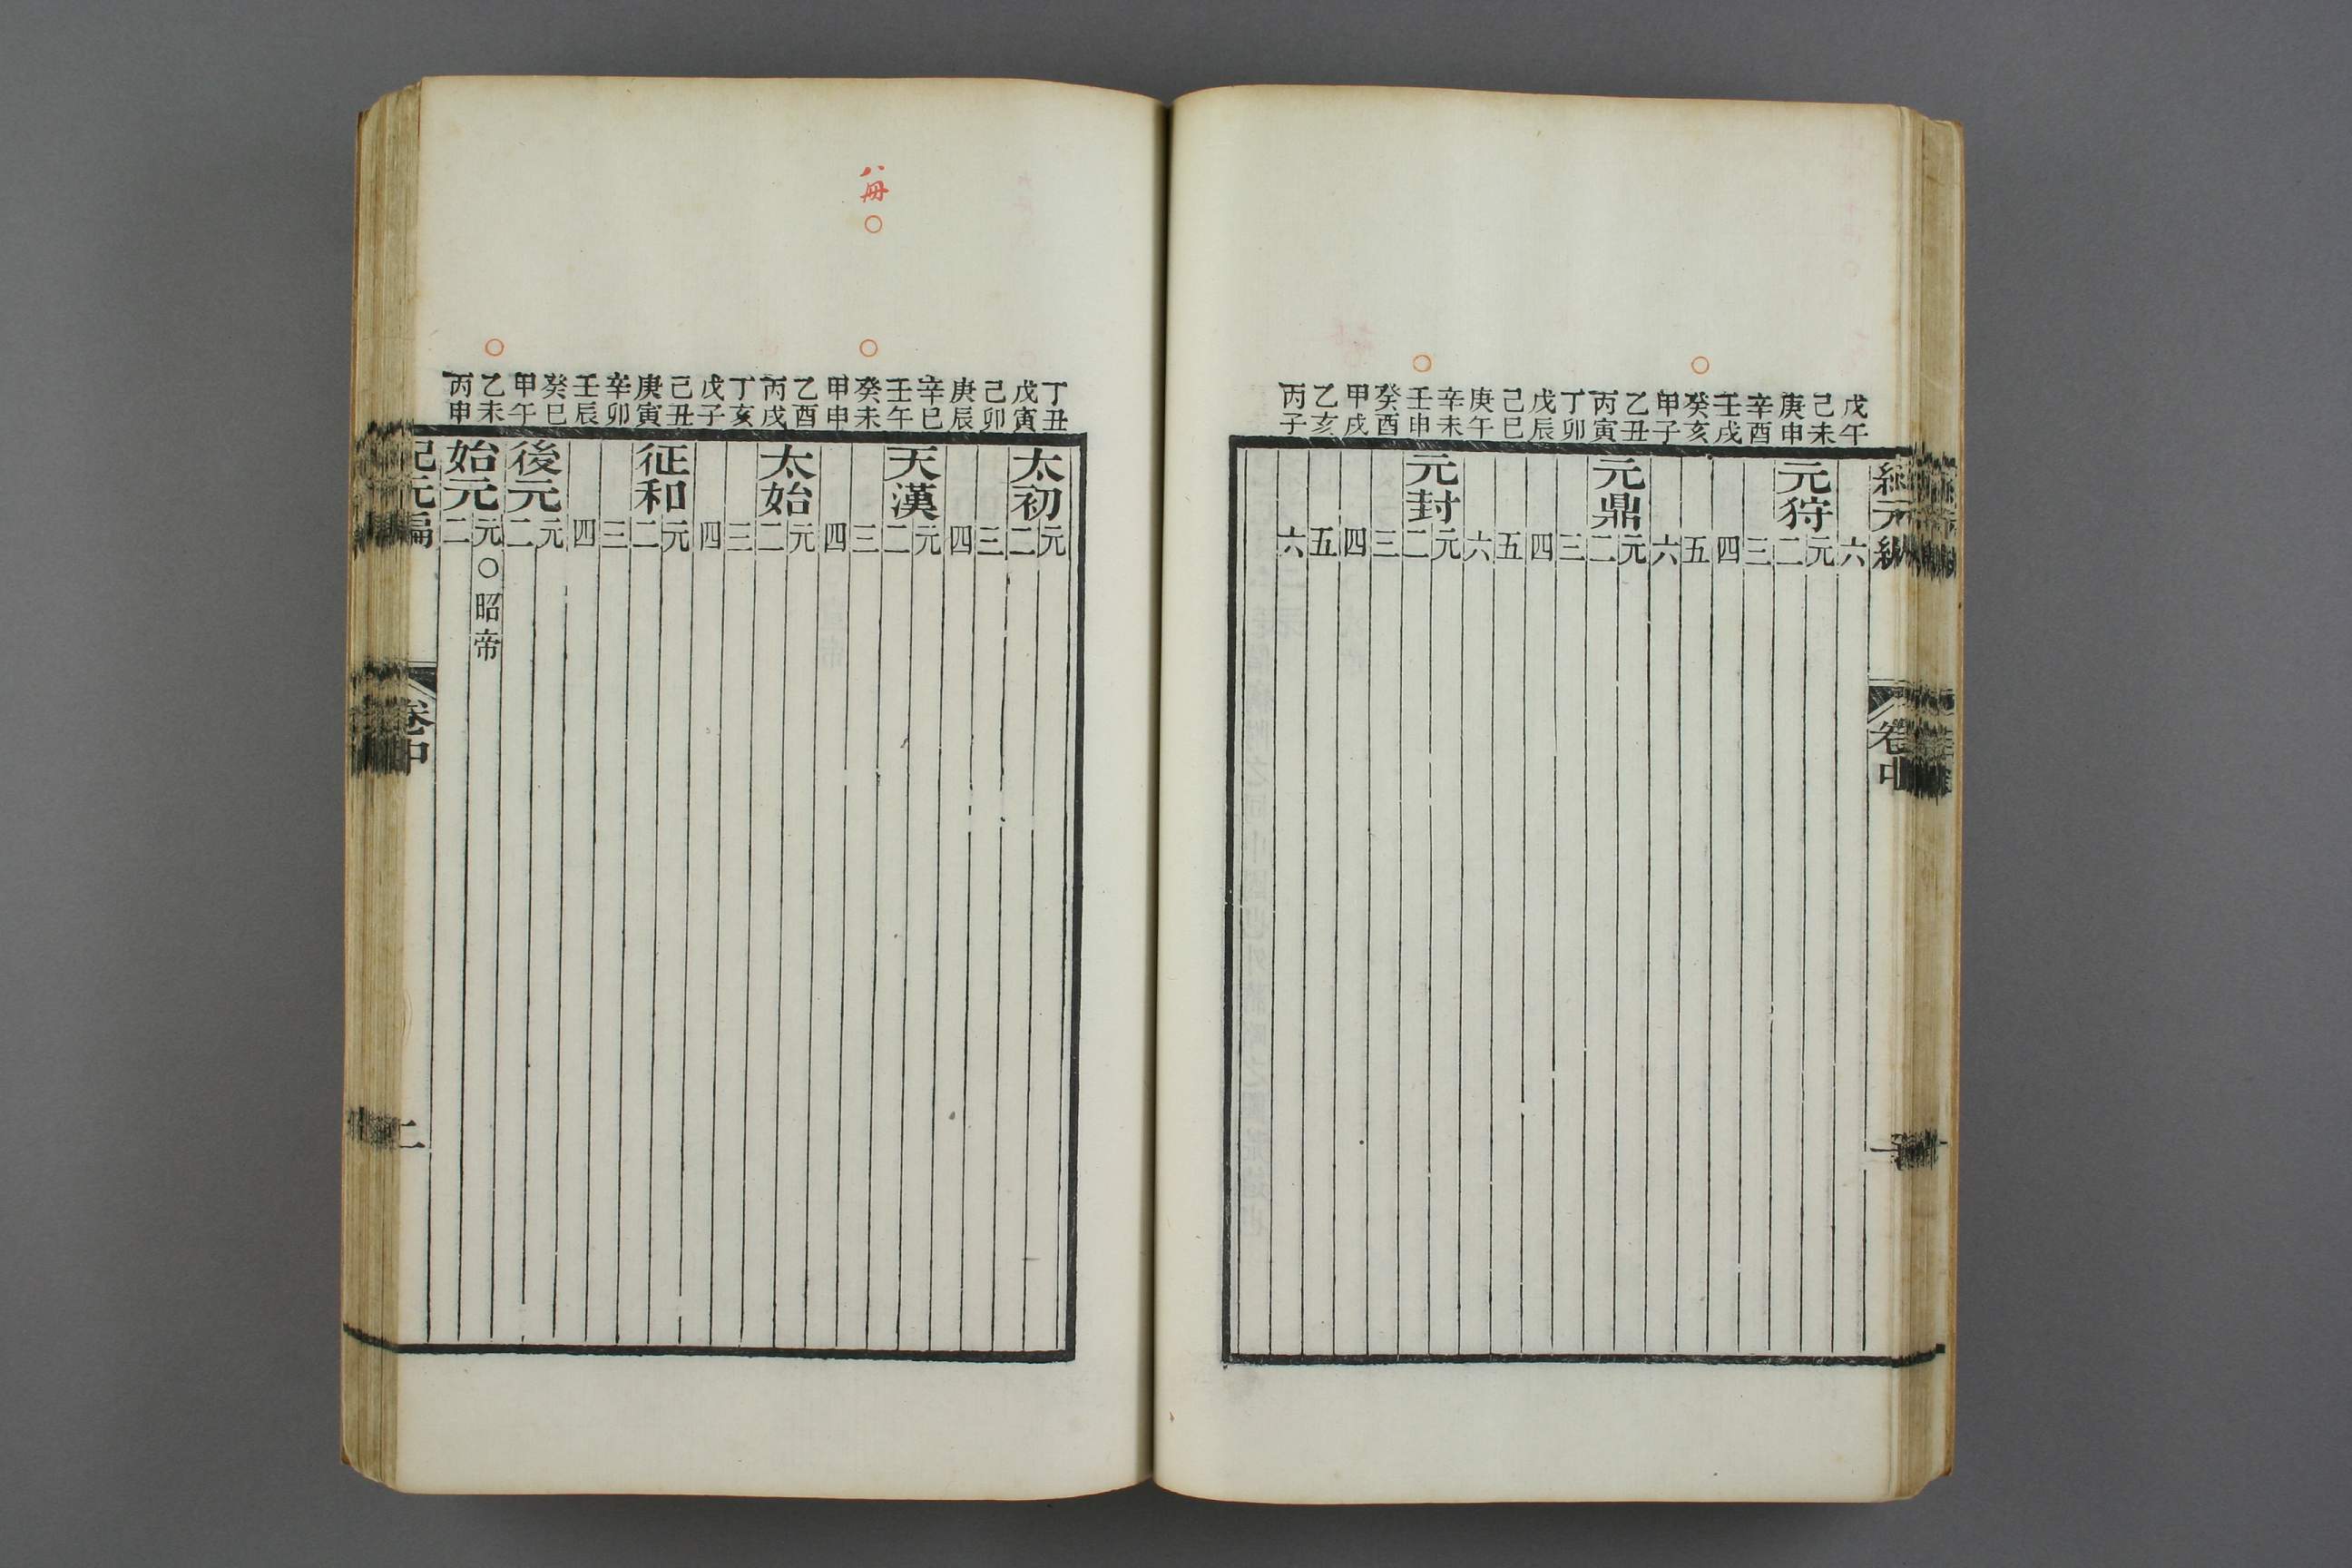 紀元編 卷中
戊午 六
己未 元狩 元
庚申 二
辛酉 三
壬戌 四
癸亥 五
甲子 六
乙丑 元鼎 元
丙寅 二
丁卯 三
戊辰 四
己巳 五
庚午 六
辛未 元封 元
壬申 二
癸酉 三
甲戌 四
乙亥 五
丙子 六
八冊○
丁丑 太初 元
戊寅 二
己卯 三
庚辰 四
辛巳 天漢 元
壬午 二
癸未 三
甲申 四
乙酉 太始 元
丙戌 二
丁亥 三
戊子 四
己丑 征和 元
庚寅 二
辛卯 三
壬辰 四
癸巳 後元 元
甲午 二
乙未 始元 元○昭帝
丙申 二
紀元編 卷中 二